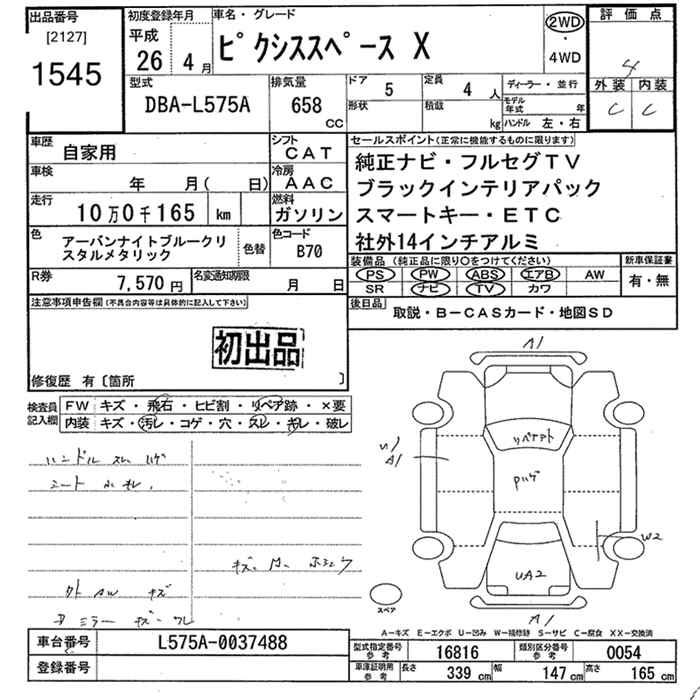 出品番号
[2127]
1545
初度登録年月
平成
26 4月
車名・グレード
ピクシススペース X
2WD
・
4WD
評価点
4
外装 内装
C C
型式
DBA-L575A
排気量
658 CC
ドア 5
形状
定員 4 人
積載 kg
ディーラー・並行
モデル年式 年
ハンドル 左・右
車歴 自家用
車検 年 月( 日)
走行 10万0千165 km
シフト CAT
冷房 AAC
燃料 ガソリン
色 アーバンナイトブルークリスタルメタリック
色替
色コード B70
R券 7,570円
名変通知期限 月 日
セールスポイント(正常に機能するものに限ります)
純正ナビ・フルセグTV
ブラックインテリアパック
スマートキー・ETC
社外14インチアルミ
装備品(純正品に限り○をつけてください)
PS PW ABS エアB AW
SR ナビ TV カワ
新車保証書
有・無
後日品
取説・B-CASカード・地図SD
注意事項申告欄(不具合内容等は具体的に記入して下さい)
初出品
修復歴 有〔箇所 〕
検査員記入欄
FW キズ・飛石・ヒビ割・リペア跡・×要
内装 キズ・汚レ・コゲ・穴・スレ・キレ・破レ
ハンドル スレ ハゲ
シート
キズ
AW キズ
ミラー キズ
A1
リペアアト
Pハゲ
U1
A1
W2
UA2
A1
スペア
A-キズ E-エクボ U-凹み W-補修跡 S-サビ C-腐食 XX-交換済
車台番号 L575A-0037488
登録番号
型式指定番号 参考 16816
類別区分番号 参考 0054
車庫証明用 参考 長さ 339 cm 幅 147 cm 高さ 165 cm